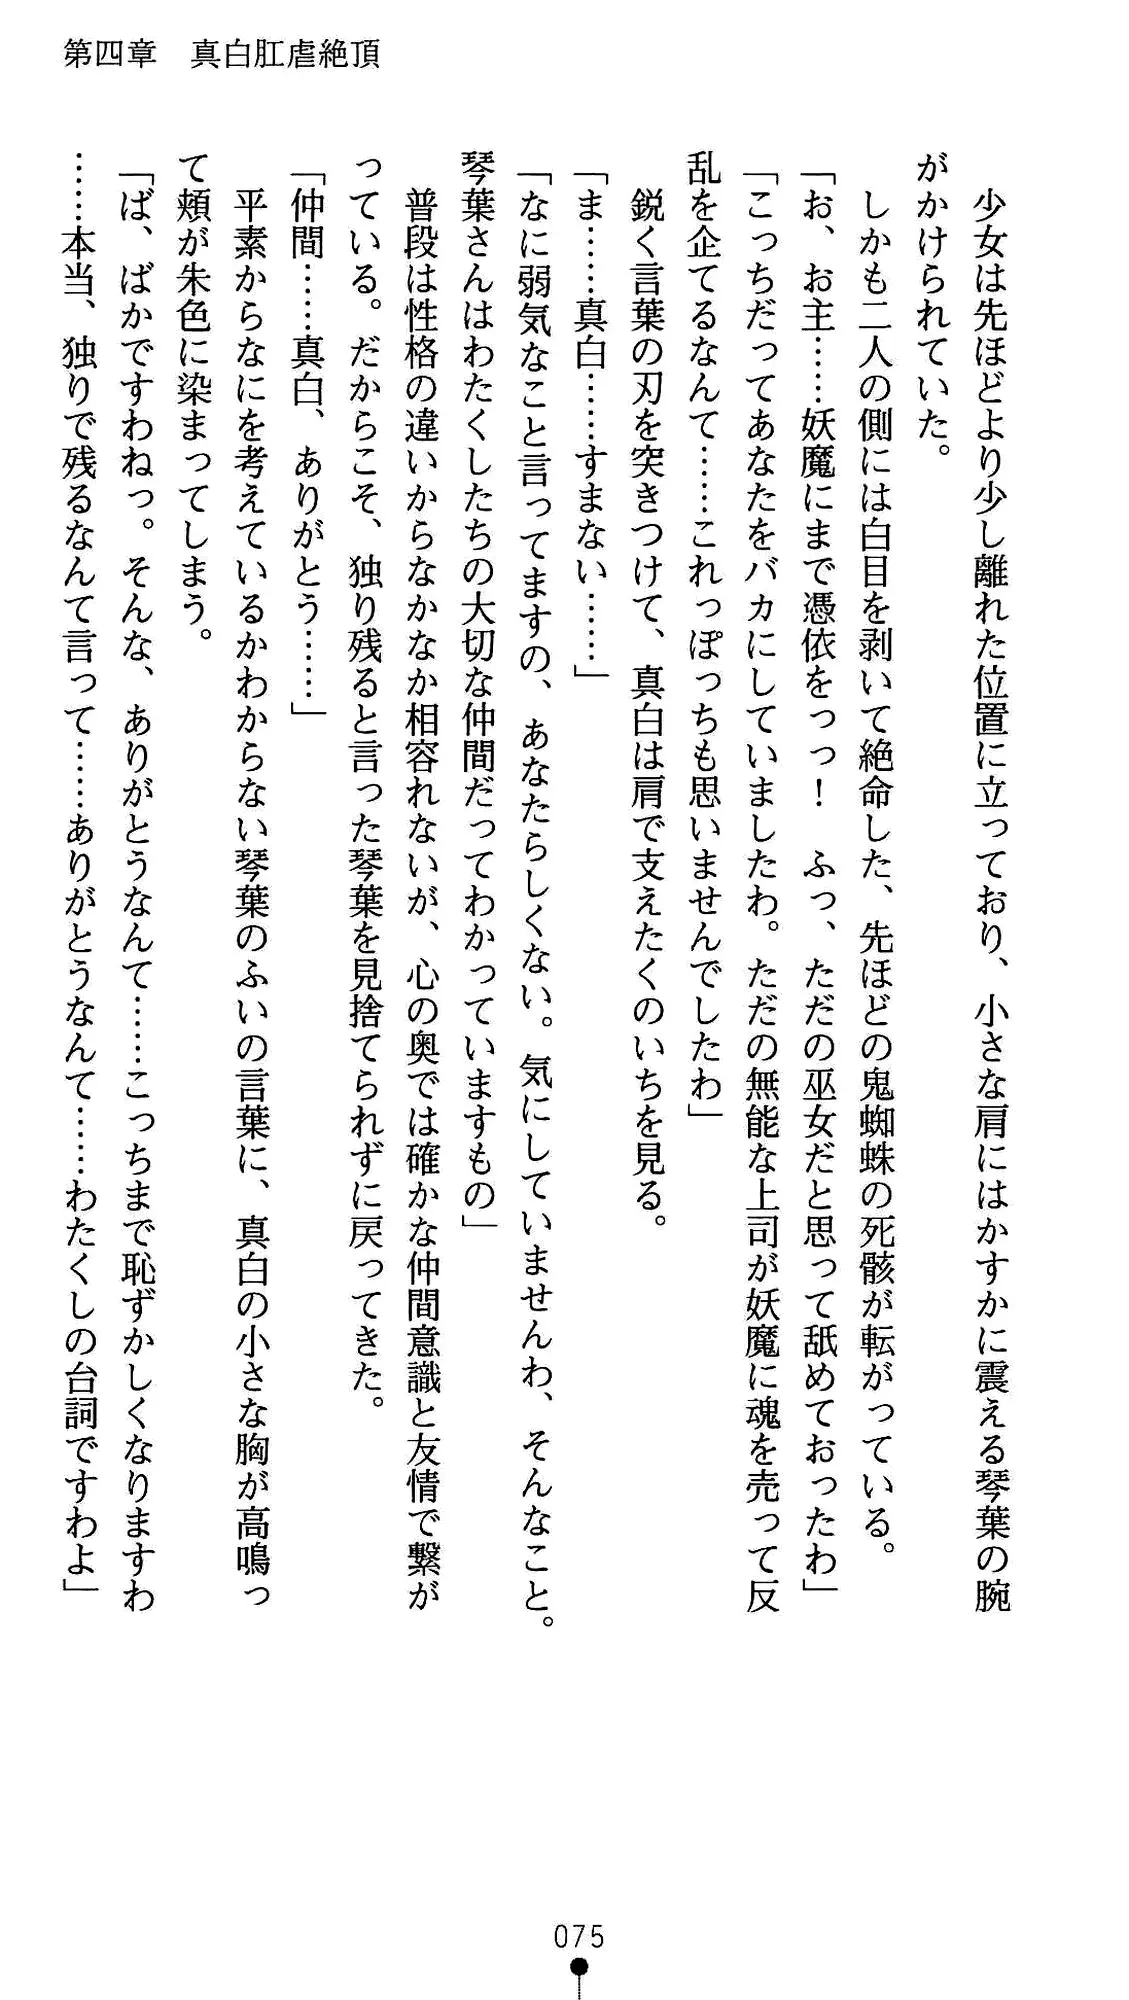 第四章　真白肛虐絶頂
　少女は先ほどより少し離れた位置に立っており、小さな肩にはかすかに震える琴葉の腕
がかけられていた。
　しかも二人の側には白目を剥いて絶命した、先ほどの鬼蜘蛛の死骸が転がっている。
「お、お主……妖魔にまで憑依をっっ！　ふっ、ただの巫女だと思って舐めておったわ」
「こっちだってあなたをバカにしていましたわ。ただの無能な上司が妖魔に魂を売って反
乱を企てるなんて……これっぽっちも思いませんでしたわ」
　鋭く言葉の刃を突きつけて、真白は肩で支えたくのいちを見る。
「ま……真白……すまない……」
「なに弱気なこと言ってますの、あなたらしくない。気にしていませんわ、そんなこと。
琴葉さんはわたくしたちの大切な仲間だってわかっていますもの」
　普段は性格の違いからなかなか相容れないが、心の奥では確かな仲間意識と友情で繋が
っている。だからこそ、独り残ると言った琴葉を見捨てられずに戻ってきた。
「仲間……真白、ありがとう……」
　平素からなにを考えているかわからない琴葉のふいの言葉に、真白の小さな胸が高鳴っ
て頬が朱色に染まってしまう。
「ば、ばかですわねっ。そんな、ありがとうなんて……こっちまで恥ずかしくなりますわ
……本当、独りで残るなんて言って……ありがとうなんて……わたくしの台詞ですわよ」
075